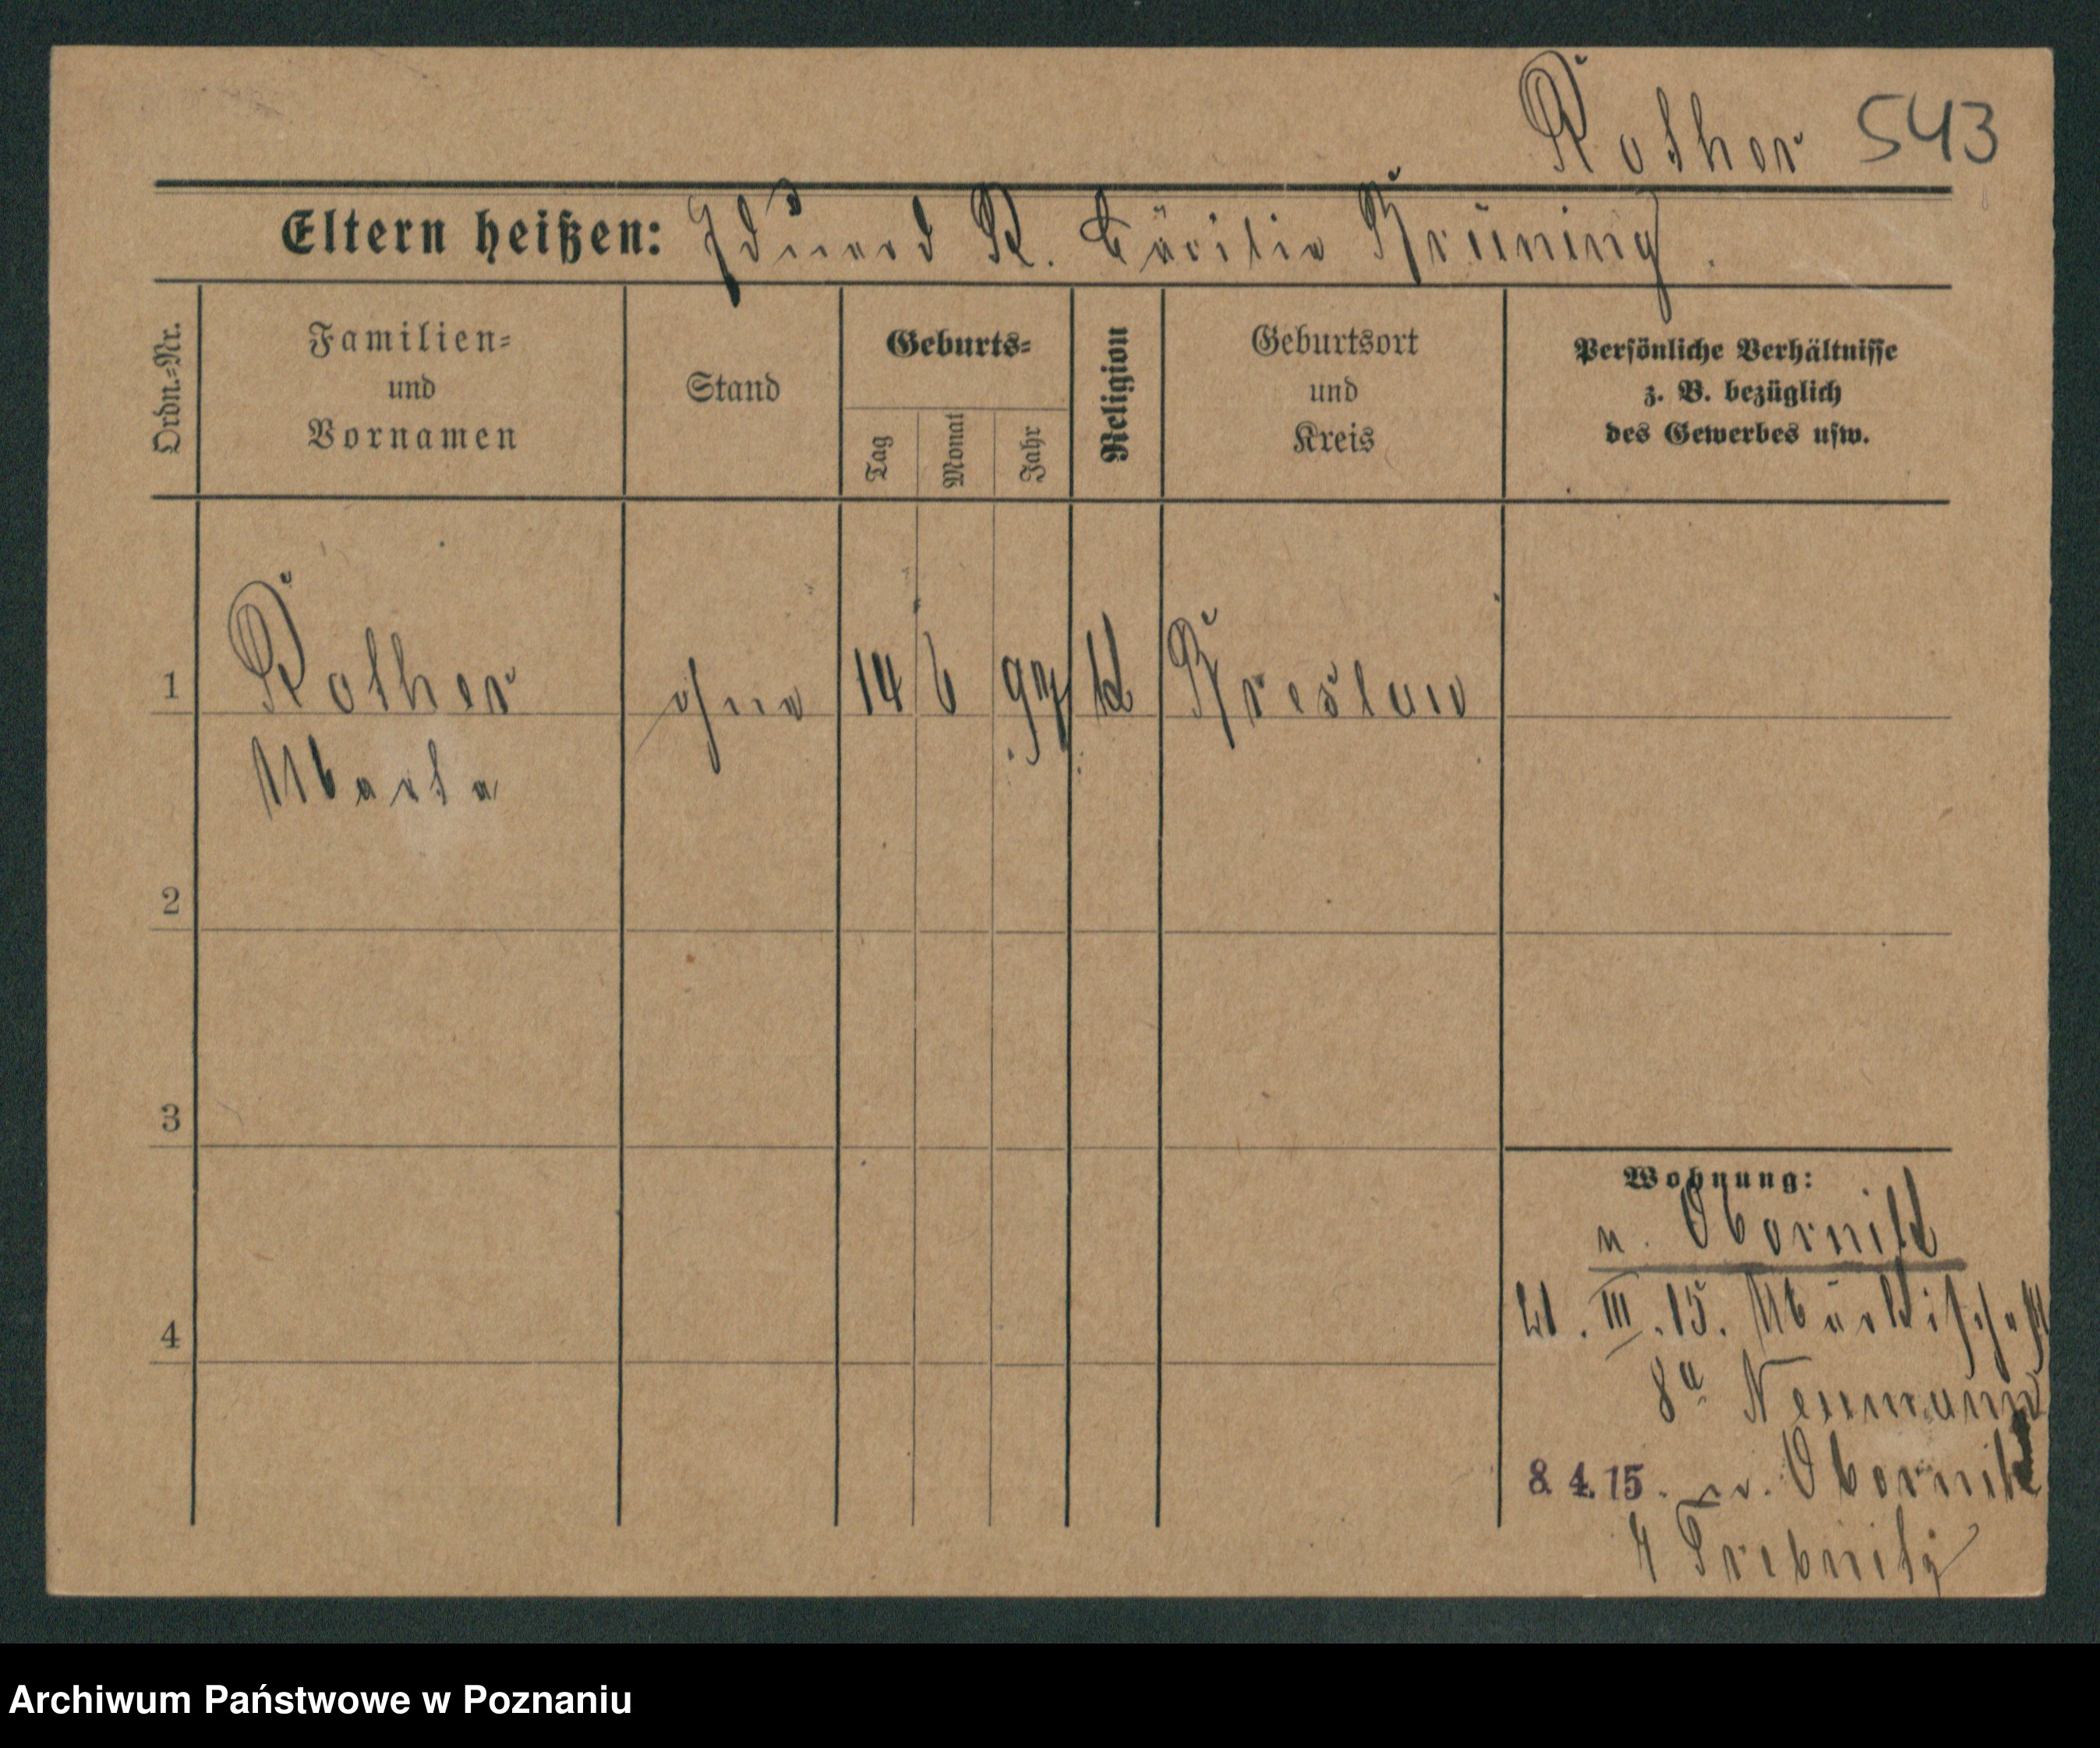 Rother 543
Eltern heißen: Eduard R. Cäcilie Brüning.
Ordn.-Nr.
Familien-
und
Vornamen
Stand
Geburts-
Tag
Monat
Jahr
Religion
Geburtsort
und
Kreis
Persönliche Verhältnisse
z. B. bezüglich
des Gewerbes usw.
1 Rother ohne 14 6 97 k Breslau
Marta
2
3
4
Wohnung:
n. Obornik
21. III. 15. Märkische
8a Neumann
8. 4. 15. n. Obornik
Trebnitz
Archiwum Państwowe w Poznaniu